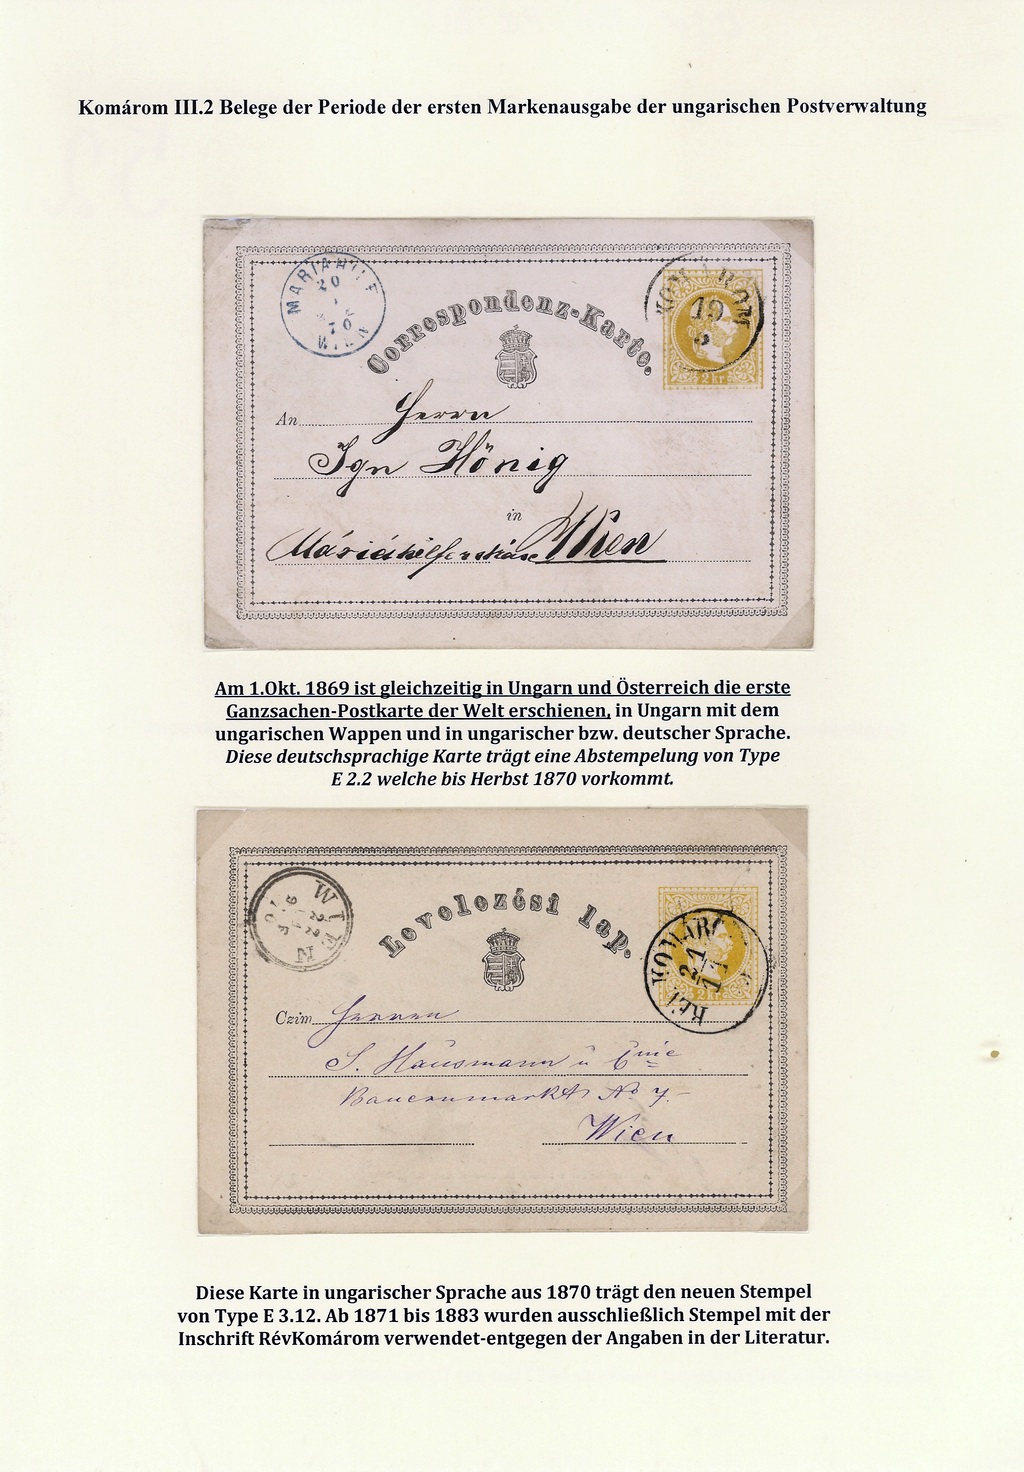 Komárom III.2 Belege der Periode der ersten Markenausgabe der ungarischen Postverwaltung
MARIAHILF
20
70
WIEN
Correspondenz-Karte.
KOMÁROM
19
2 Kr
An Herrn
Ign Hönig
in
Mariahilferstrasse Wien
Am 1.Okt. 1869 ist gleichzeitig in Ungarn und Österreich die erste
Ganzsachen-Postkarte der Welt erschienen, in Ungarn mit dem
ungarischen Wappen und in ungarischer bzw. deutscher Sprache.
Diese deutschsprachige Karte trägt eine Abstempelung von Type
E 2.2 welche bis Herbst 1870 vorkommt.
WIEN
22
70
Levelezési lap.
RÉV KOMÁRO
21
11
2 Kr
Czim Herren
S. Hausmann u Cmie
Bauernmarkt No 7.-
Wien
Diese Karte in ungarischer Sprache aus 1870 trägt den neuen Stempel
von Type E 3.12. Ab 1871 bis 1883 wurden ausschließlich Stempel mit der
Inschrift RévKomárom verwendet-entgegen der Angaben in der Literatur.